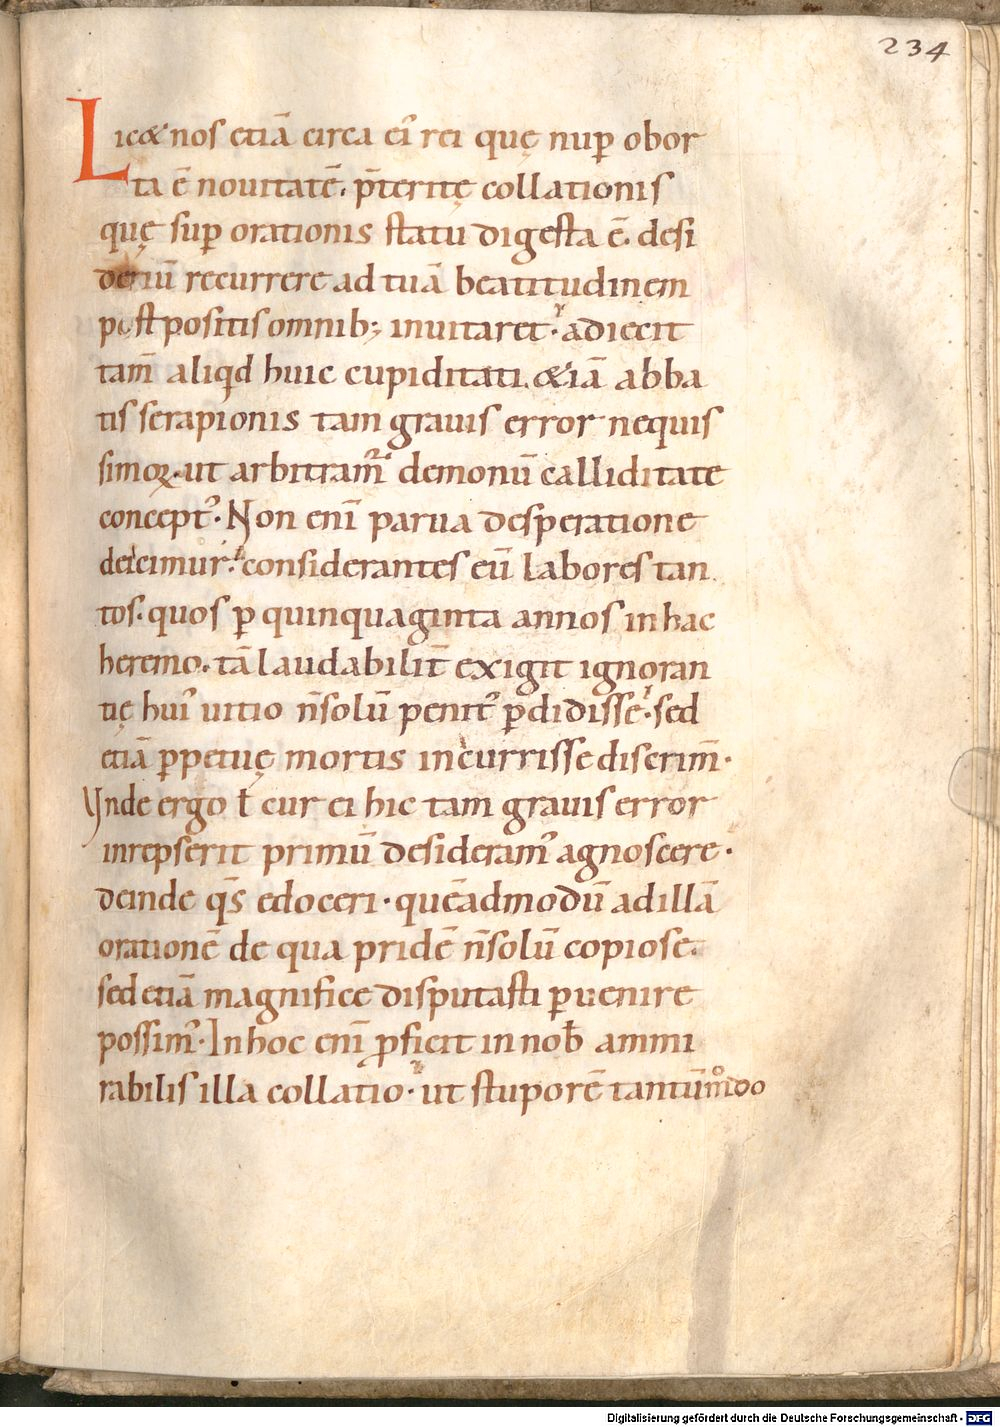 234
Lic& nos etiā circa ei᾽ rei quę nup̄ obor
ta ē nouitatē. p̄teritę collationis
quę sup̄ orationis statu digesta ē. desi
deriū recurrere ad tuā beatitudinem
postpositis omnib; inuitaret. adiecit
tam̄ aliqd huic cupiditati. &iā abba
tis serapionis tam grauis error nequis
simoꝝ. ut arbitram᾽ demonū calliditate
concept᾽. Non eni̅ parua desperatione
deicimur. considerantes eū labores tan
tos. quos ꝑ quinquaginta annos in hac
heremo. tā laudabilit̄ exigit ignoran
tię hui᾽ uitio n̄ solū penit᾽ ꝑdidisse. sed
etiā ꝑpetuę mortis incurrisse discrim̄.
Vnde ergo ł cur ei hic tam grauis error
inrepserit primū desideram᾽ agnoscere.
deinde qs̄ edoceri. quēadmodū ad illā
orationē de qua pridē n̄ solū copiose.
sed etiā magnifice disputasti ꝑuenire
possim᾽. In hoc eni̅ ꝓficit in nob̄ ammi
rabilis illa collatio. ut stuporē tantūm̊do
Digitalisierung gefördert durch die Deutsche Forschungsgemeinschaft - DFG